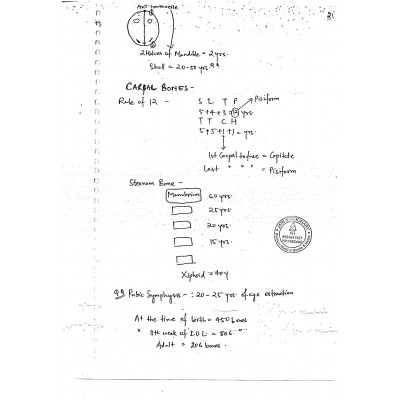 Ant fontanelle
3
2 Halves of Mandible = 2 yrs.
Skull = 20-50 yrs
CARPAL BONES -
Rule of 12 -
S L T P → Pisiform
5+4+3+12 yrs
T T C H
5+5+1+1 = yrs.
1st Carpal to fuse = Capitate
Last " " " = Pisiform
Sternum Bone -
Manubrium 60 yrs.
25 yrs
20 yrs.
15 yrs.
Xiphoid = 40 y
Pubic Symphysis - : 20-25 yrs of age estimation
At the time of birth = 450 bones
" 11th week of I.U.L = 806 "
Adult = 206 bones.